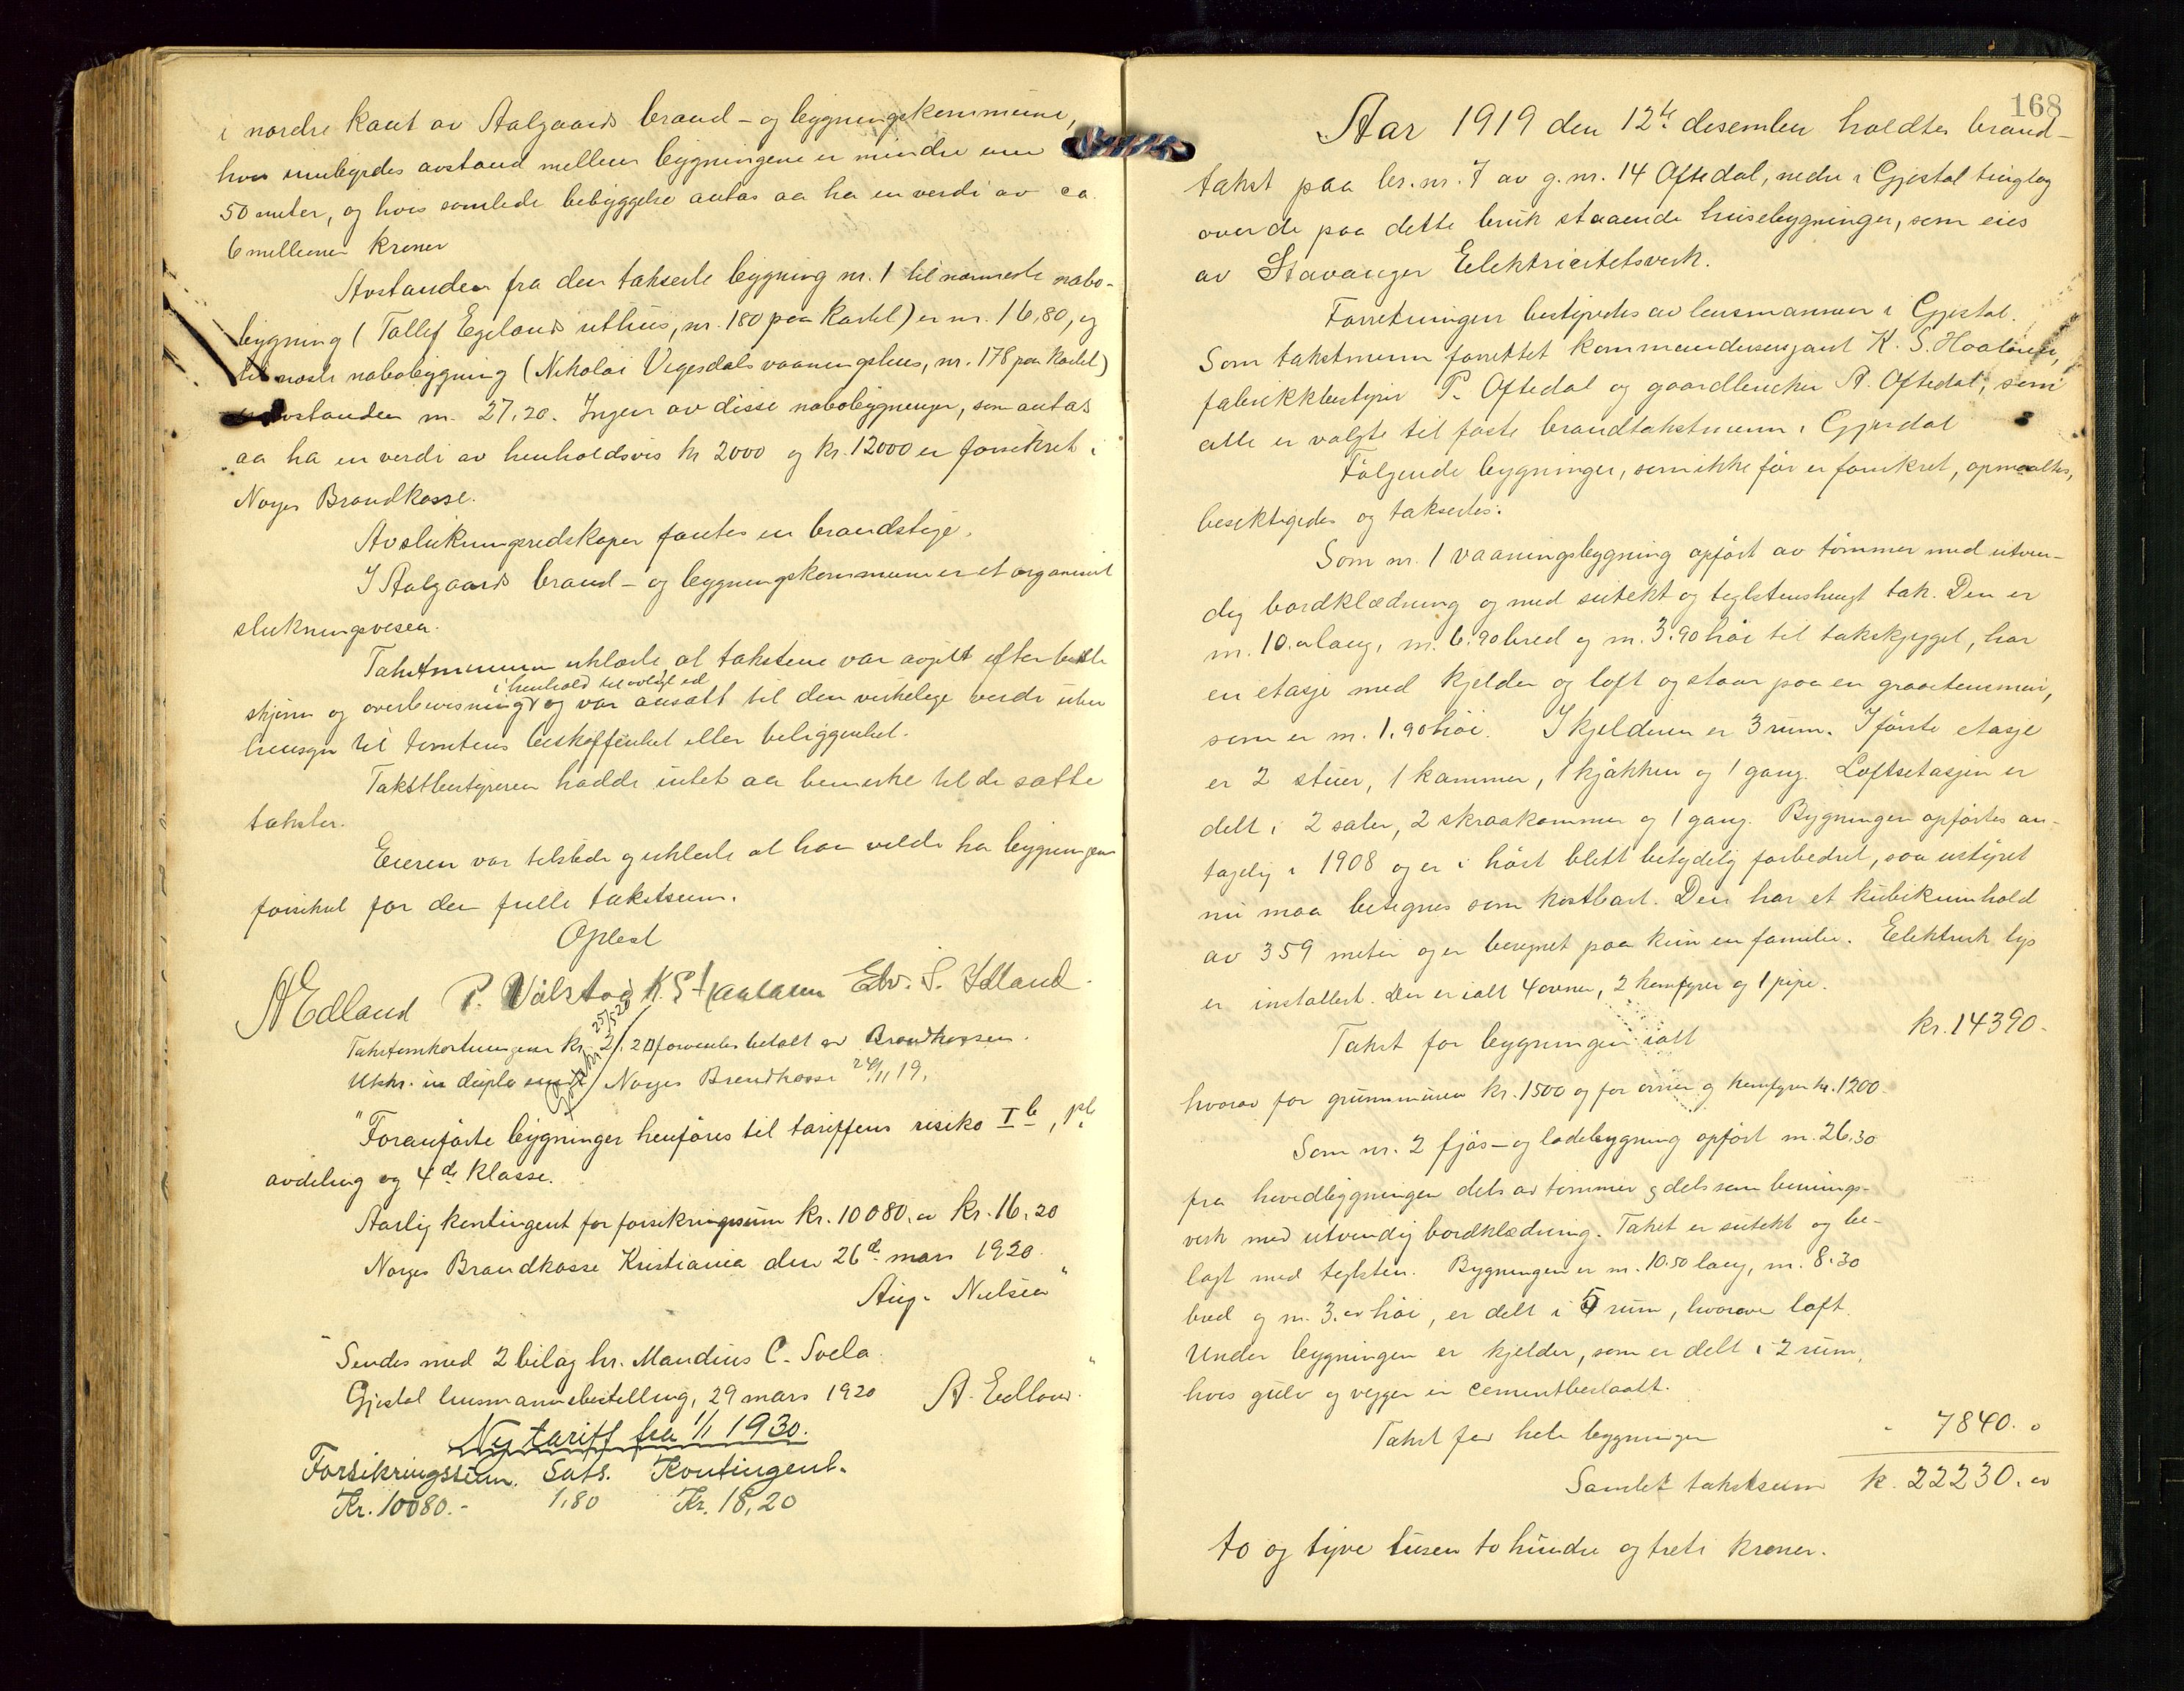 i nordre kant av Aalgaards brand- og bygningskommune,
hvis indbyrdes avstand mellem bygningene er mindre enn
50 meter, og hvis samlede bebyggelse antas aa ha en verdi av ca.
6 millioner kroner
Avstanden fra den takserte bygning nr. 1 til nærmeste nabo-
bygning (Tollef Egelands uthus, nr. 180 paa kartet) er m. 16,80, og
til næste nabobygning (Nikolai Vegesdals vaaningshus, nr. 178 paa kartet)
avstanden m. 27,20. Ingen av disse nabobygninger, som antas
aa ha en verdi av henholdsvis kr 2000 og kr. 12000 er forsikret i
Norges Brandkasse.
Av slukningsredskaper fantes en brandstige.
I Aalgaards brand- og bygningskommune er et organisert
slukningsvesen.
Takstmennene erklærte at takstene var avgitt efter bedste
i henhold til avlagt ed
skjønn og overbevisning og var ansatt til den virkelige verdi uten
hensyn til tomtens beskaffenhet eller beliggenhet.
Takstbestyreren hadde intet aa bemerke til de satte
takster.
Eieren var tilstede og erklærte at han vilde ha bygningen
forsikret for den fulle takstsum.
Oplest
A Edland P. Válstad K. S. Haaland Edv. S. Idland
Takstomkostningene kr. 21.20 forventes betalt av Brandkassen.
25/5 20
Utskr. in duplo sendt Norges Brandkasse 24/11 19.
"Foranførte bygninger henføres til tariffens risiko I b, pl.
avdeling og 4de klasse.
Aarlig kontingent for forsikringssum kr. 10080. er kr. 16,20
Norges Brandkasse Kristiania den 26de mars 1920.
Aug. Nielsen"
"Sendes med 2 bilag hr. Maudius C. Svela.
Gjestal lensmannsbestilling, 29 mars 1920 A. Edland."
Ny tariff fra 1/1 1930.
Forsikringssum. Sats. Kontingent.
Kr. 10080.- 1,80 Kr. 18,20
168
Aar 1919 den 12te desember holdtes brand-
takst paa br. nr. 7 av g. nr. 14 Oftedal, nedre i Gjestal tinglag
over de paa dette bruk staaende husebygninger, som eies
av Stavanger Elektricitetsverk.
Forretningen bestyredes av lensmannen i Gjestal.
Som takstmenn forrettet kommandersersjant K. S. Haaland,
fabrikkbestyrer P. Oftedal og gaardbruker A. Oftedal, som
alle er valgte til faste brandtakstmenn i Gjesdal
Følgende bygninger, som ikke før er forsikret, opmaaltes,
besiktigedes og taksertes:
Som nr. 1 vaaningsbygning opført av tømmer med utven-
dig bordklædning og med sutekt og teglstenshengt tak. Den er
m. 10.00 lang, m. 6.90 bred og m. 3.90 høi til takskjegget, har
en etasje med kjelder og loft og staar paa en graastensmur,
som er m. 1.90 høi. I kjelderen er 3 rum. I første etasje
er 2 stuer, 1 kammer, 1 kjøkken og 1 gang. Loftsetasjen er
delt i 2 saler, 2 skraakammer og 1 gang. Bygningen opførtes an-
tagelig i 1908 og er i høst blett betydelig forbedret, saa utstyret
nu maa betegnes som kostbart. Den har et kubikinnhold
av 359 meter og er beregnet paa kun en familie. Elektrisk lys
er installert. Der er ialt 4 ovner, 2 komfyrer og 1 pipe.
Takst for bygningen ialt kr. 14390.-
hvorav for grunnmuren kr. 1500 og for ovner og komfyrer kr. 1200.
Som nr. 2 fjøs- og ladebygning opført m. 26.30
fra hovedbygningen dels av tømmer og dels som bennings-
verk med utvendig bordklædning. Taket er sutekt og be-
lagt med teglsten. Bygningen er m. 10.50 lang, m. 8.30
bred og m. 3.00 høi, er delt i 5 rum, hvorover loft.
Under bygningen er kjelder, som er delt i 2 rum,
hvis gulv og vegger er cementbeslaatt.
Takst for hele bygningen " 7840. 0
Samlet takstsum k. 22230. 00
to og tyve tusen to hundre og treti kroner.